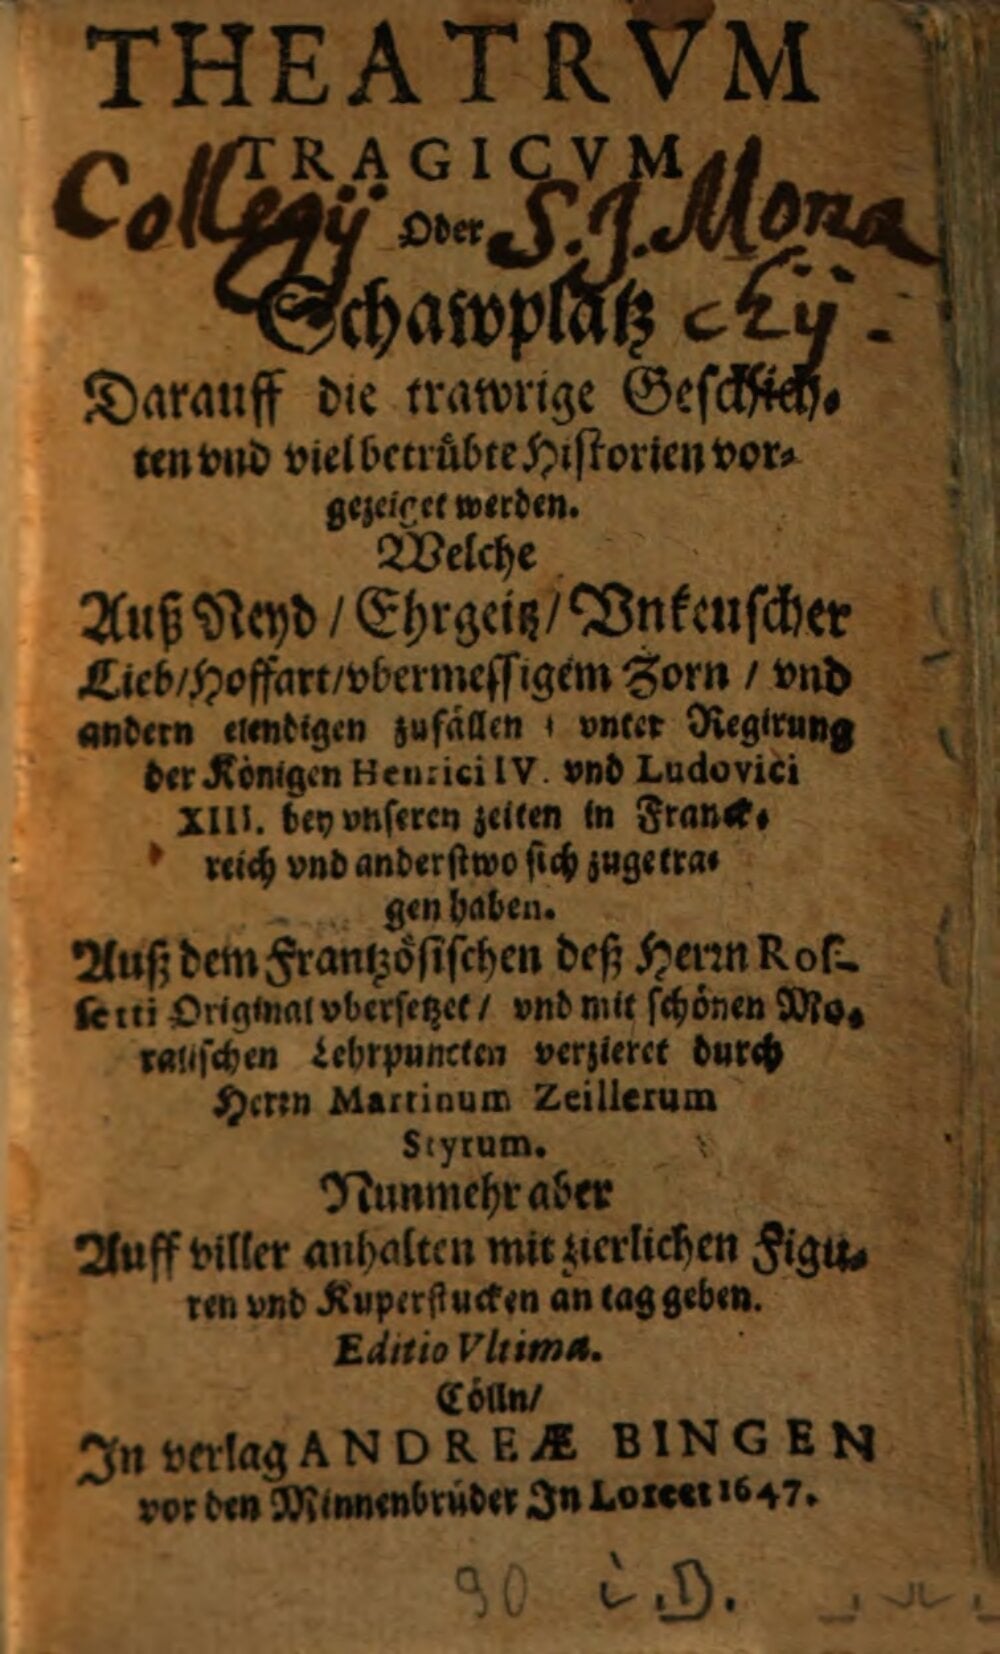 THEATRVM
TRAGICVM
Collegij Oder S. J. Mona
Schawplatz chij.
Darauff die trawrige Geschich⸗
ten vnd viel betrübte Historien vor⸗
gezeiget werden.
Welche
Auß Neyd / Ehrgeitz / Vnkeuscher
Lieb / Hoffart / vbermessigem Zorn / vnd
andern elendigen zufällen / vnter Regirung
der Königen Henrici IV. vnd Ludovici
XIII. bey vnseren zeiten in Franck⸗
reich vnd anderstwo sich zugetra⸗
gen haben.
Auß dem Frantzösischen deß Herrn Ros⸗
setti Original vbersetzet / vnd mit schönen Mo⸗
ralischen Lehrpuncten verzieret durch
Herrn Martinum Zeillerum
Styrum.
Nunmehr aber
Auff viller anhalten mit zierlichen Figu⸗
ren vnd Kuperstucken an tag geben.
Editio Vltima.
Cölln /
In verlag ANDREÆ BINGEN
vor den Minnenbrüder In Loreet 1647.
90